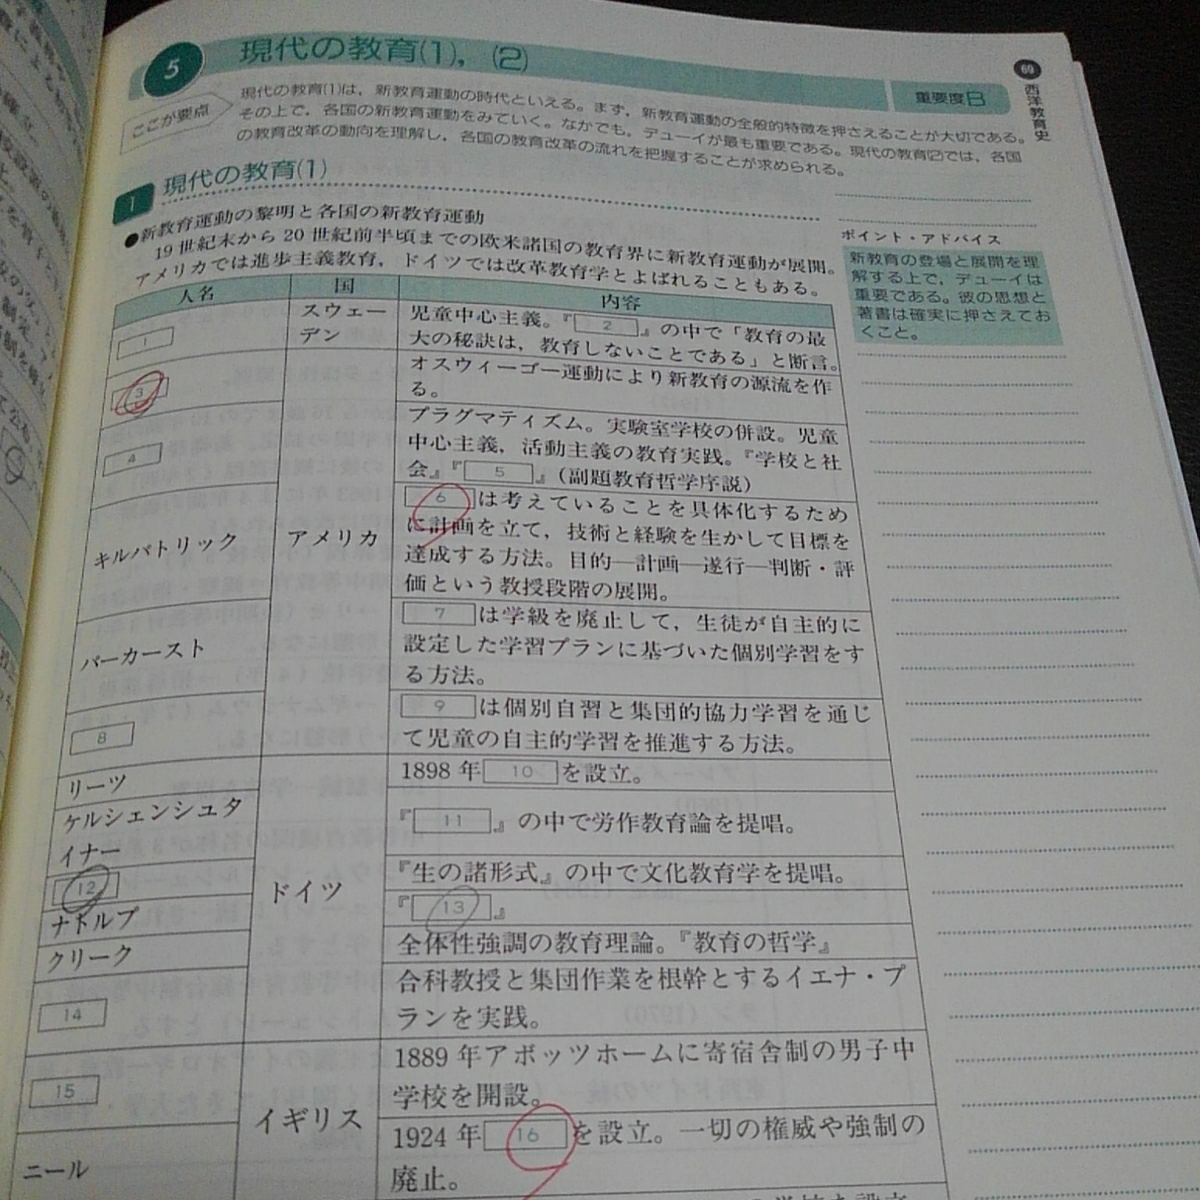 5 現代の教育(1)，(2)
重要度B
69
西洋教育史
ここが要点
現代の教育(1)は，新教育運動の時代といえる。まず，新教育運動の全般的特徴を押さえることが大切である。
その上で，各国の新教育運動をみていく。なかでも，デューイが最も重要である。現代の教育(2)では，各国
の教育改革の動向を理解し，各国の教育改革の流れを把握することが求められる。
1 現代の教育(1)
●新教育運動の黎明と各国の新教育運動
19世紀末から20世紀前半頃までの欧米諸国の教育界に新教育運動が展開。
アメリカでは進歩主義教育，ドイツでは改革教育学とよばれることもある。
ポイント・アドバイス
新教育の登場と展開を理
解する上で，デューイは
重要である。彼の思想と
著書は確実に押さえてお
くこと。
人名 国 内容
1
スウェー
デン
児童中心主義。『 2 』の中で「教育の最
大の秘訣は，教育しないことである」と断言。
3
オスウィーゴー運動により新教育の源流を作
る。
4
プラグマティズム。実験室学校の併設。児童
中心主義，活動主義の教育実践。『学校と社
会』『 5 』（副題教育哲学序説）
キルパトリック
アメリカ
6 は考えていることを具体化するため
に計画を立て，技術と経験を生かして目標を
達成する方法。目的―計画―遂行―判断・評
価という教授段階の展開。
パーカースト
7 は学級を廃止して，生徒が自主的に
設定した学習プランに基づいた個別学習をす
る方法。
8
9 は個別自習と集団的協力学習を通じ
て児童の自主的学習を推進する方法。
リーツ
1898年 10 を設立。
ケルシェンシュタ
イナー
『 11 』の中で労作教育論を提唱。
12
ドイツ
『生の諸形式』の中で文化教育学を提唱。
ナトルプ
『 13 』
クリーク
全体性強調の教育理論。『教育の哲学』
14
合科教授と集団作業を根幹とするイエナ・プ
ランを実践。
15
1889年アボッツホームに寄宿舎制の男子中
学校を開設。
イギリス
ニール
1924年 16 を設立。一切の権威や強制の
廃止。